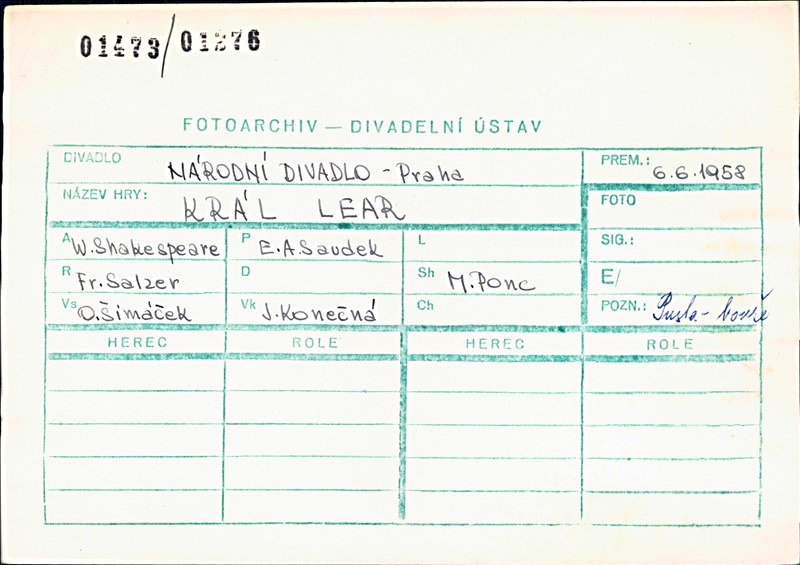 01473/01376
FOTOARCHIV — DIVADELNÍ ÚSTAV
DIVADLO NÁRODNÍ DIVADLO - Praha PREM.: 6.6.1958
NÁZEV HRY: KRÁL LEAR FOTO
A W. Shakespeare P E.A. Saudek L SIG.:
R Fr. Salzer D Sh M. Ponc E/
Vs O. Šimáček Vk J. Konečná Ch POZN.: Pusta- bouře
HEREC ROLE HEREC ROLE